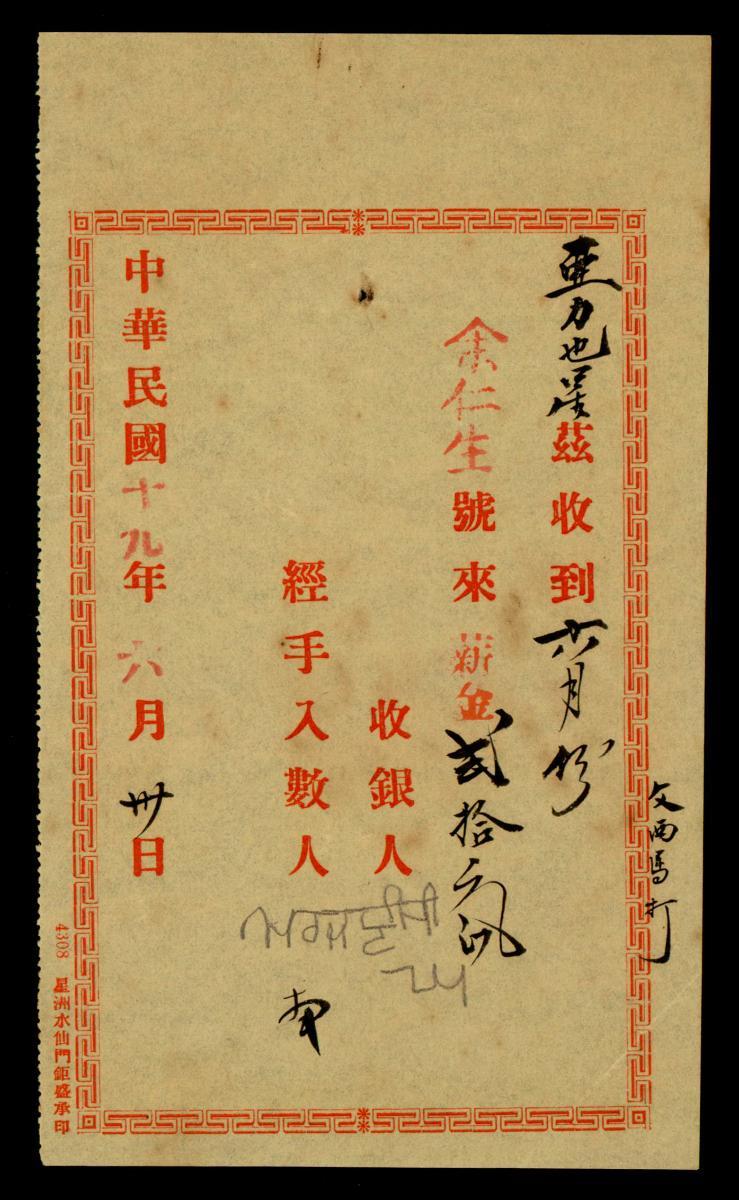 文西馬打
亜力也星茲收到六月份
余仁生號來薪金弍拾元
收銀人
經手入數人
中華民國十九年六月卅日
4308 星洲水仙門鉅盛承印